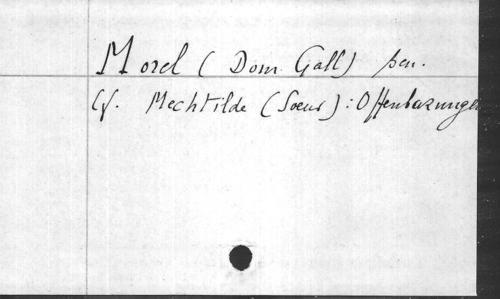 Morel (Dom Gall)
Cf. Mechtilde (Soeur) : Offenbarungen